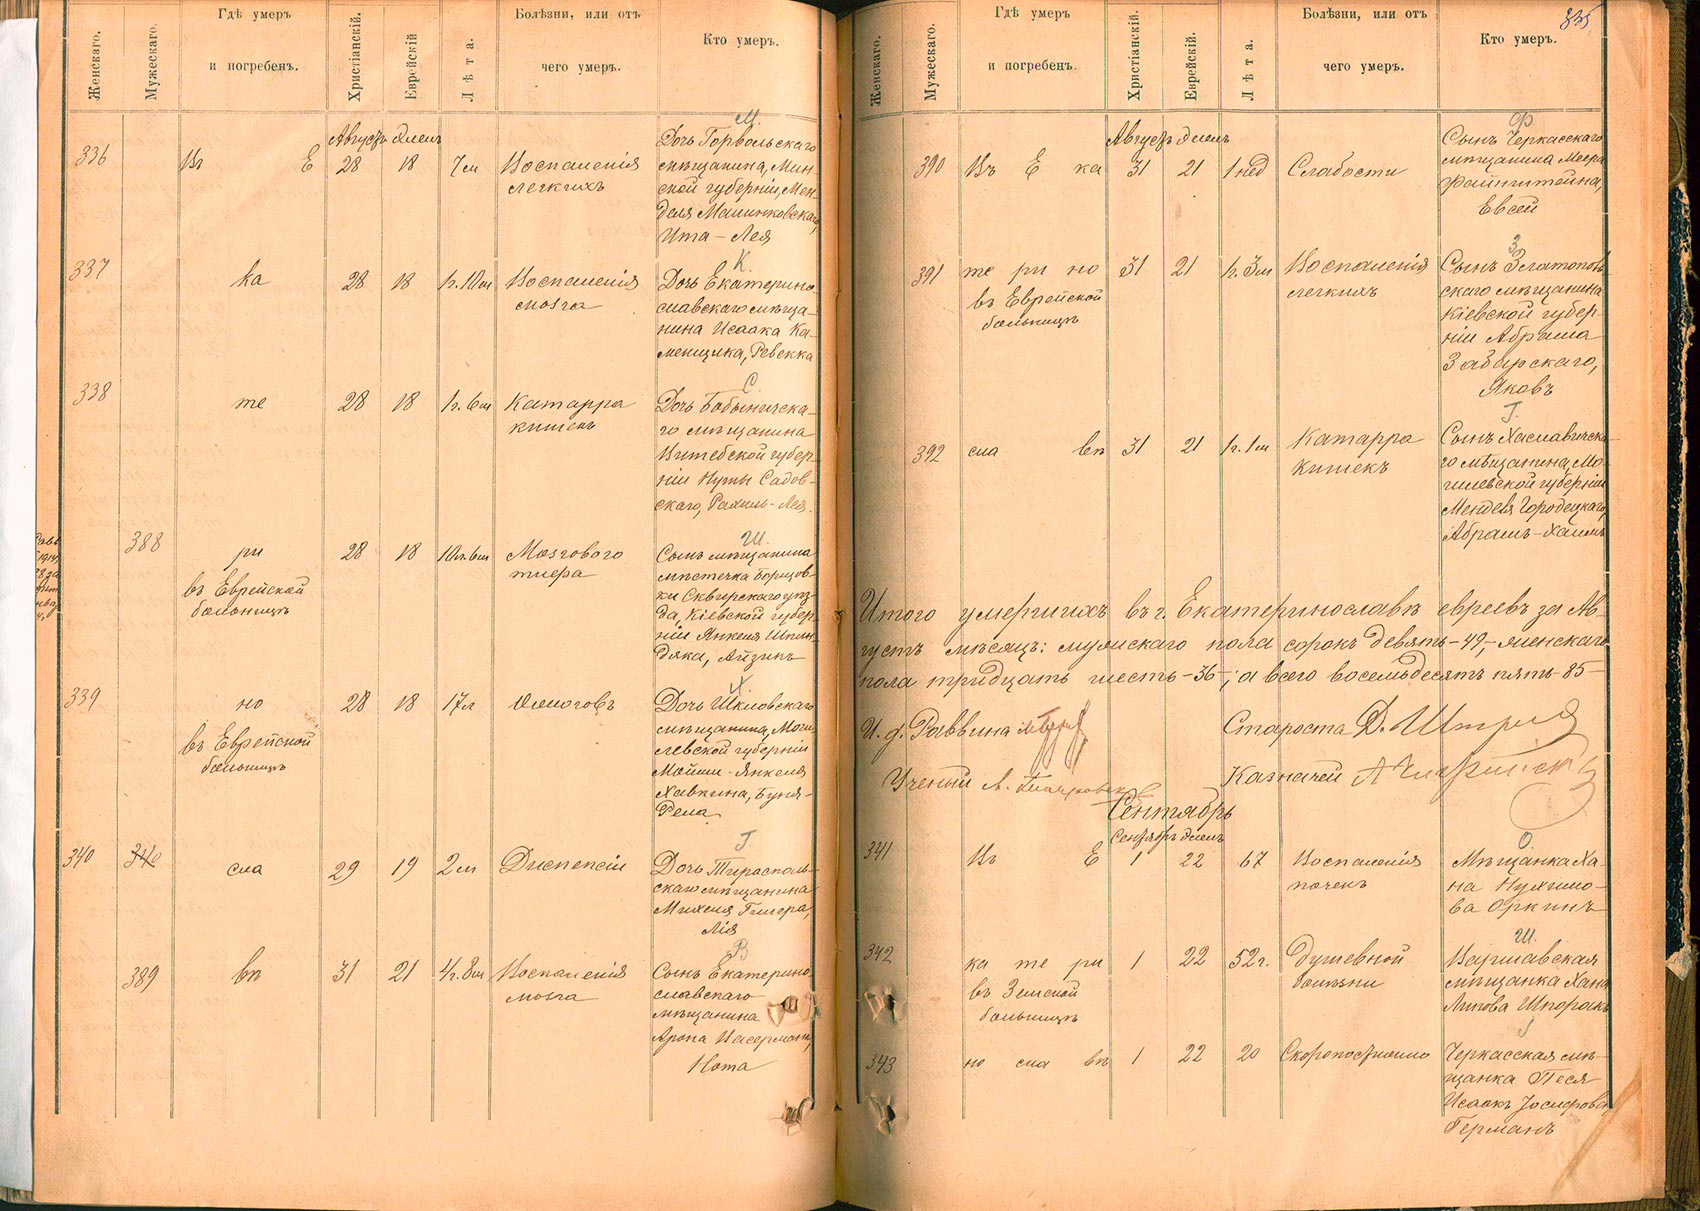 Женскаго.
Мужескаго.
Гдѣ умеръ
и погребенъ.
Христіанскій.
Еврейскій
Лѣта.
Болѣзни, или отъ
чего умеръ.
Кто умеръ.
Августъ днемъ
М.
336
Въ Е
28
18
7 м
Воспаленія
легкихъ
Дочь Горвольскаго
мѣщанина, Мин-
ской губерніи, Мен-
деля Малинковскаго,
Ита-Лея
К.
337
ка
28
18
1г. 10 м
Воспаленія
мозга
Дочь Екатерино-
славскаго мѣща-
нина Исаака Ка-
менщика, Ревекка
С.
338
те
28
18
1г. 6 м
Катарра
кишекъ
Дочь Бобыническа-
го мѣщанина
Витебской губер-
ніи Нуты Садов-
скаго, Рахиль-Лея.
Ш.
388
ри
въ Еврейской
больницѣ
28
18
10л. 6м
Мозгового
тифа
Сынъ мѣщанина
мѣстечка Борщов-
ки Сквирскаго уѣз-
да, Кіевской губер-
ніи Янкеля Шпин-
дяка, Айзикъ
Х
339
но
въ Еврейской
больницѣ
28
18
17 л
Ожоговъ
Дочь Шкловскаго
мѣщанина, Моги-
левской губерніи
Мойши-Янкеля
Хавкина, Буня-
Рела
Г
340
340
сла
29
19
2 м
Диспепсіи
Дочь Тирасполь-
скаго мѣщанина
Михеля Гилера,
Лія
В
389
вѣ
31
21
4г. 8м
Воспаленія
мозга
Сынъ Екатерино-
славскаго
мѣщанина
Арона Васермана,
Нота
335
Женскаго.
Мужескаго.
Гдѣ умеръ
и погребенъ
Христіанскій.
Еврейскій.
Лѣта.
Болѣзни, или отъ
чего умеръ.
Кто умеръ.
Августъ днемъ
Ф
390
Въ Е ка
31
21
1 нед
Слабости
Сынъ Черкасскаго
мѣщанина Меера
Файнштейна,
Евсей
З
391
те ри но
въ Еврейской
больницѣ
31
21
1г. 3м
Воспаленія
легкихъ
Сынъ Златополь-
скаго мѣщанина
Кіевской губер-
ніи Абрама
Забарскаго,
Яковъ
Г.
392
сла вѣ
31
21
1г. 1м
Катарра
кишекъ
Сынъ Хаславическа-
го мѣщанина, Мо-
гилевской губерніи
Менделя Городецкаго,
Абрамъ-Хаимъ
Итого умершихъ въ г. Екатеринославѣ евреевъ за Ав-
густъ мѣсяцъ: мужскаго пола сорокъ девять-49,-женскаго
пола тридцать шесть-36-; а всего восемьдесятъ пять-85-
И. д. Раввина
Староста Д. Штрия
Ученый А.
Казначей А
Сентябрь
Сентябрь днемъ
О.
341
Въ Е
1
22
67
Воспаленія
почекъ
Мѣщанка Ха-
на Нухимо-
ва Оркинъ
Ш.
342
ка те ри
въ Земской
больницѣ
1
22
52 г.
Душевной
болѣзни
Варшавская
мѣщанка Хана
Липова Шпоракъ
343
но сла вѣ
1
22
20
Скоропостижно
Черкасская мѣ-
щанка Песя
Исаакъ Іосифова
Германъ